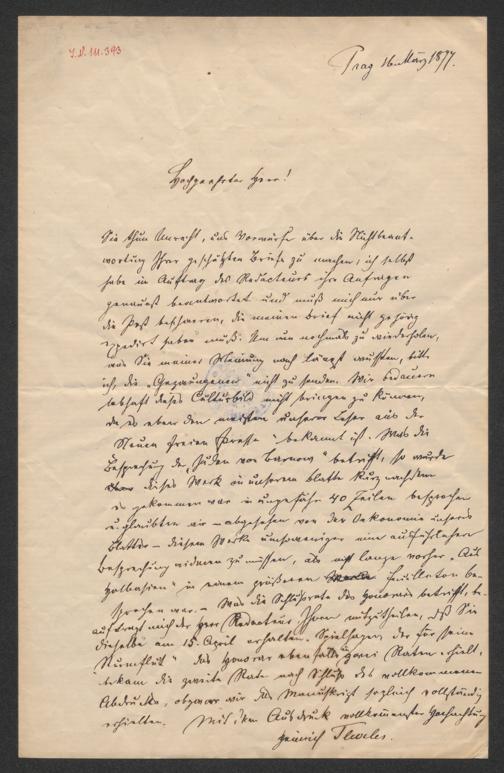 I.N. 111.393
Prag 16. März 1877.
Hochgeehrter Herr!
Sie thun Unrecht, uns Vorwürfe über die Nichtbeant-
wortung Ihrer geschätzten Briefe zu machen; ich selbst
habe im Auftrag des Redacteurs ihre Anfragen
genauest beantwortet und muß mich nur über
die Post beschweren, die meinen Brief nicht gehörig
expedirt haben muß. Um nun nochmals zu wiederholen,
was Sie meiner Meinung nach längst wußten, bitte
ich, die "Gezwungenen" nicht zu senden. Wir bedauern
lebhaft dieses Culturbild nicht bringen zu können,
da es eben den meisten unserer Leser aus der
"Neuen freien Presse" bekannt ist. Was die
Besprechung der "Juden von Barnow" betrifft, so wurde
dieses Werk in unserem Blatte kurz nachdem
es gekommen war in ungefähr 40 Zeilen besprochen
u. glaubten wir – abgesehen von der Oekonomie unseres
Blattes – diesem Werke umsoweniger eine ausführlichere
Besprechung widmen zu müssen, als nicht lange vorher "Aus
Halbasien" in einem größeren Feuilleton be-
sprochen war. – Was die Schlußrate des Honorars betrifft, be-
auftragt mich der Herr Redacteur Ihnen mitzutheilen, daß Sie
dieselbe am 15. April erhalten. Spielhagen, der für seine
"Sturmflut" das Honorar ebenfalls in zwei Raten erhielt,
bekam die zweite Rate nach Schluß des vollkommenen
Abdrucks, obzwar wir das Manuskript sogleich vollständig
erhielten. Mit dem Ausdruck vollkommenster Hochachtung
Heinrich Teweles.